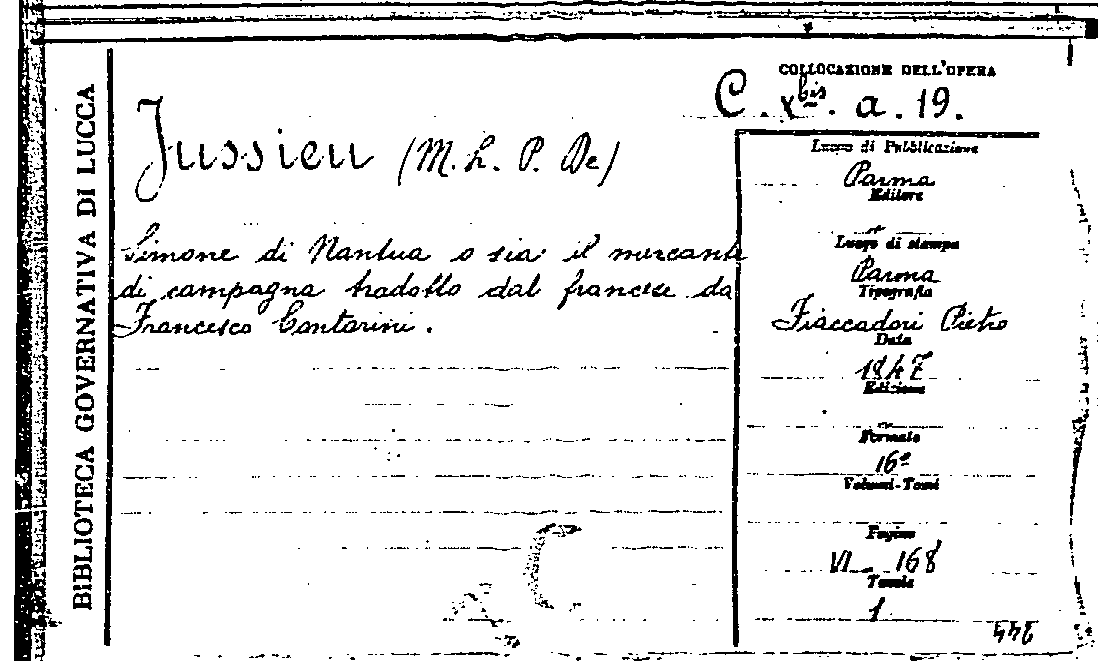 BIBLIOTECA GOVERNATIVA DI LUCCA
COLLOCAZIONE DELL'OPERA
C. Xbis. a. 19.
Jussieu (M. L. P. De)
Simone di Nantua o sia il mercante
di campagna tradotto dal francese da
Francesco Contarini.
Luogo di Pubblicazione
Parma
Editore
Luogo di stampa
Parma
Tipografia
Fiaccadori Pietro
Data
1847
Edizione
Formato
16º
Volumi-Tomi
Pagine
VI - 168
Tavole
1